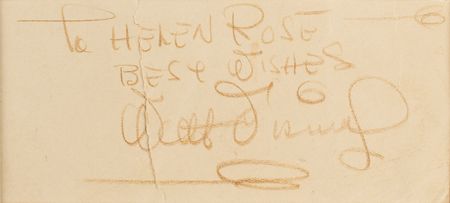 To HELEN ROSE
BEST WISHES
Walt Disney